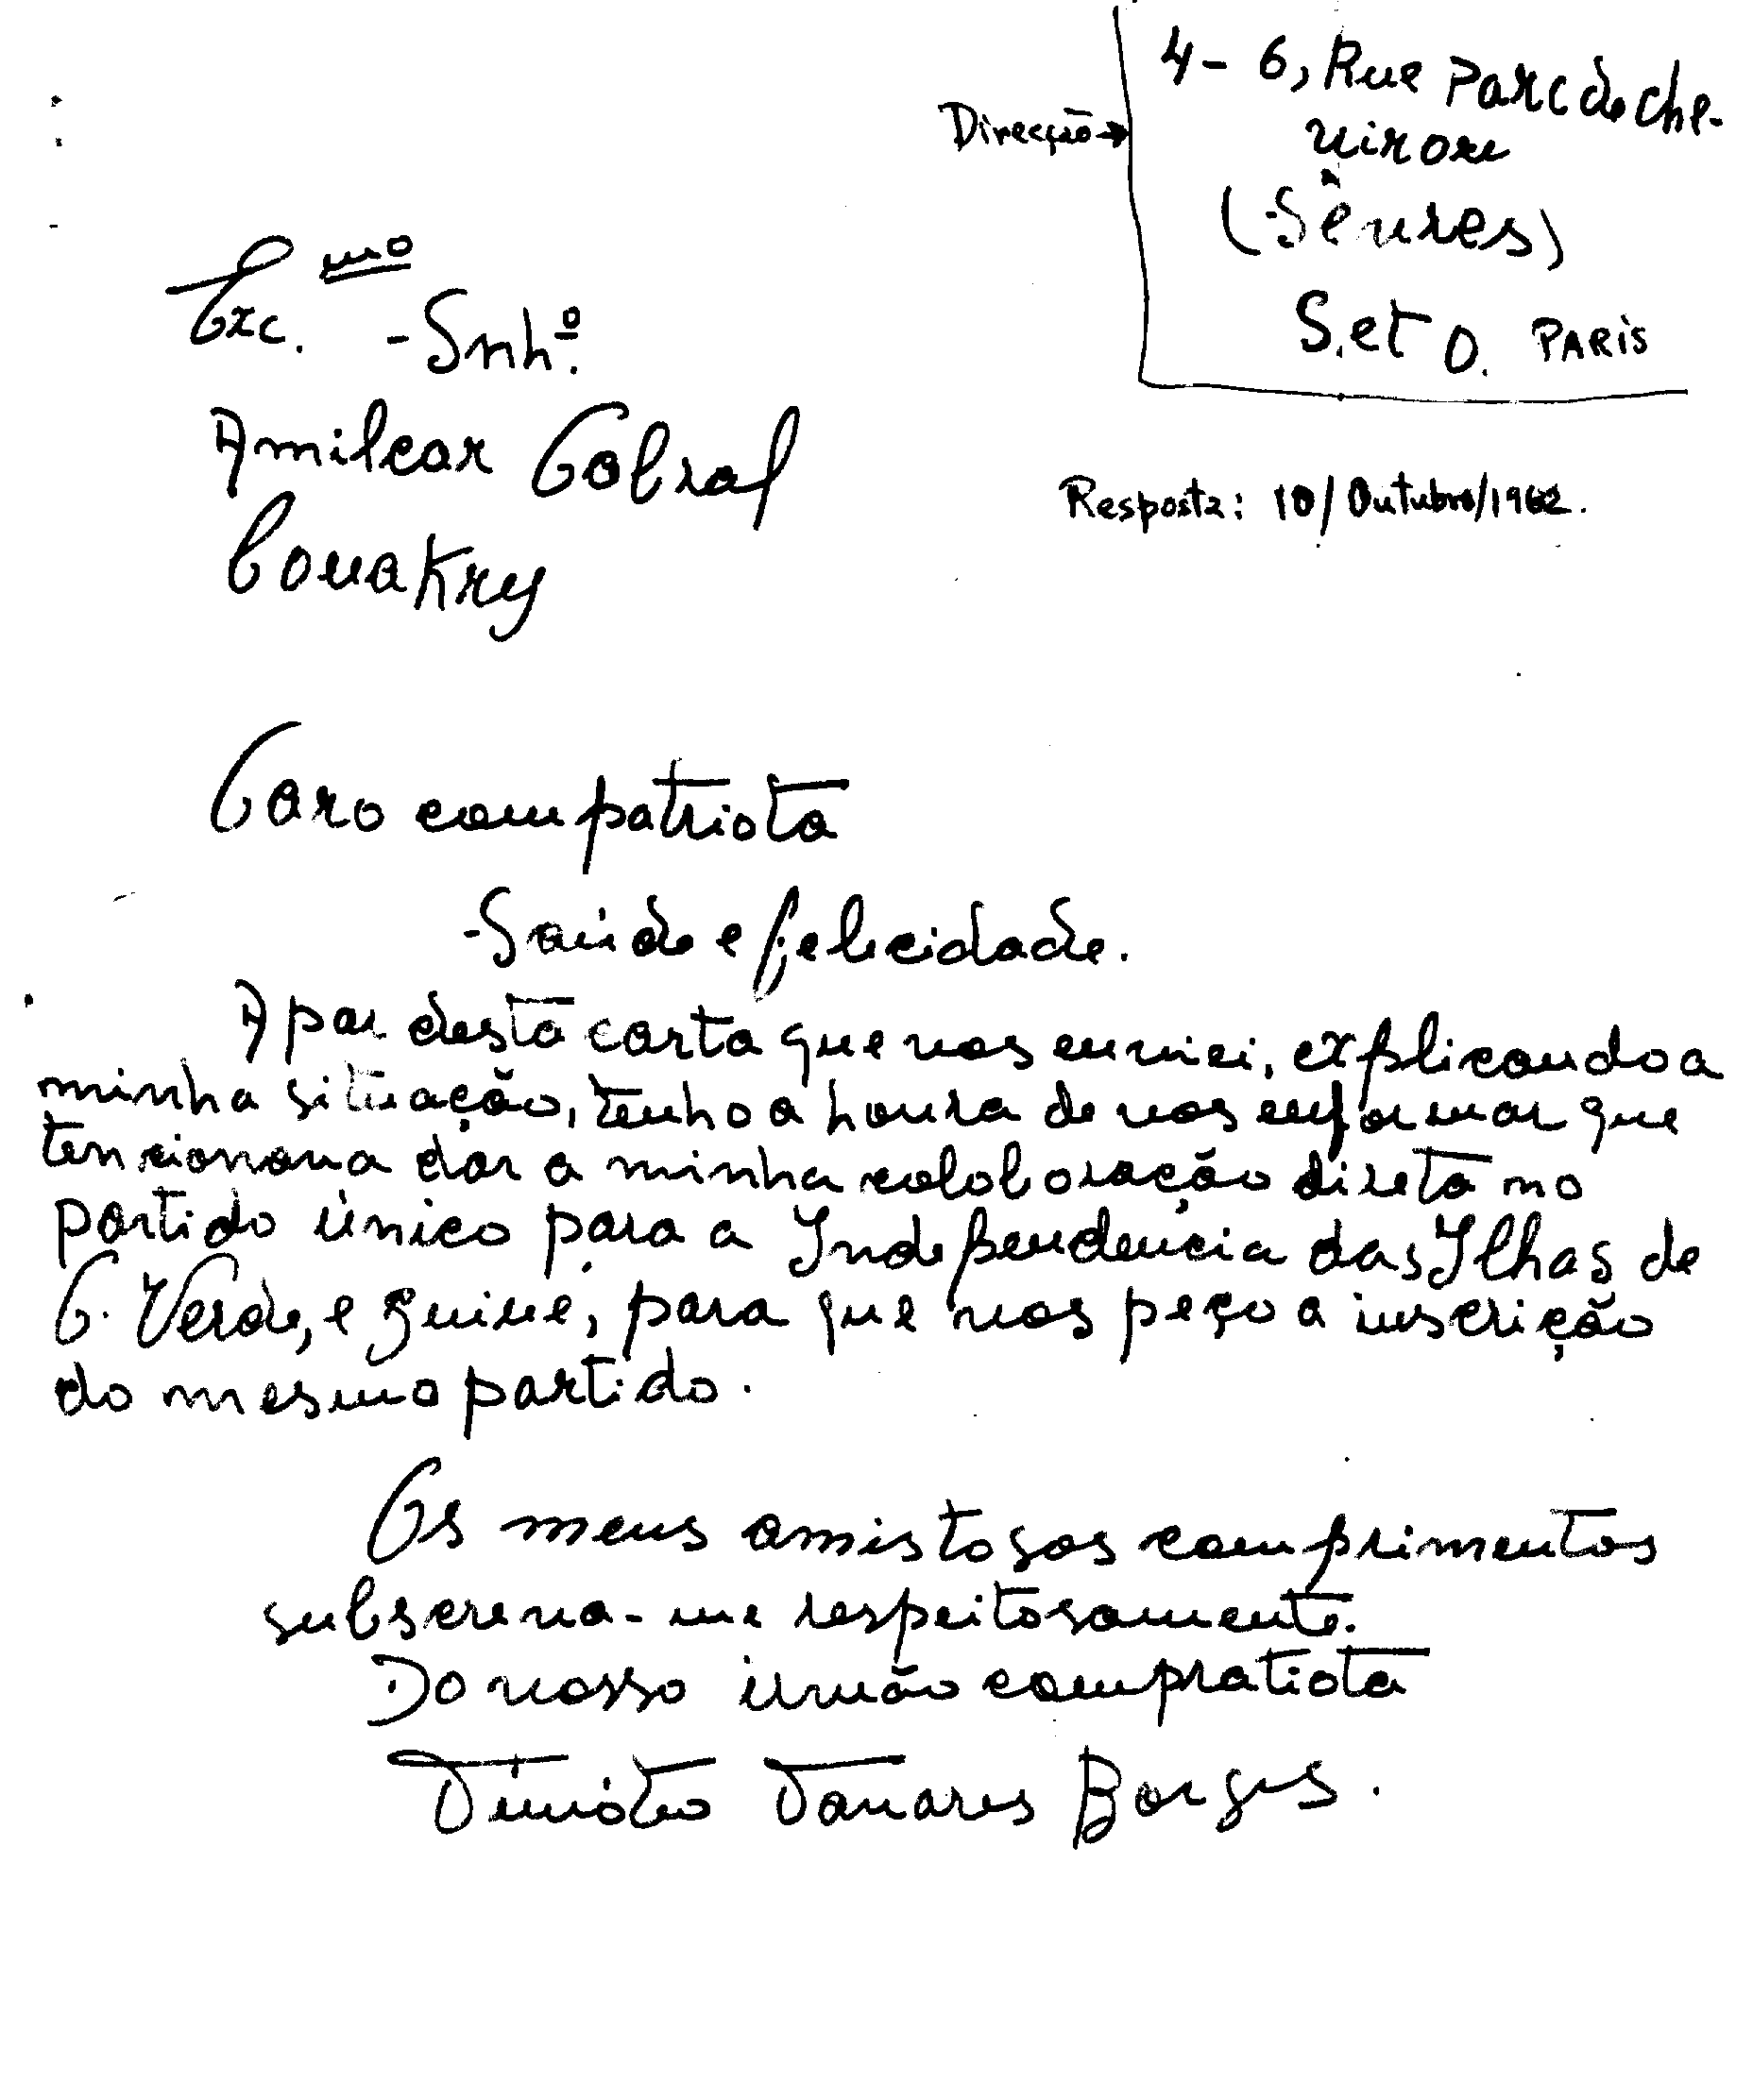 Direcção→
4-6, Rue Parc de Che-
viron
(Sèvres)
S. et O. PARIS
Exc.mo Snhº.
Amilcar Cabral
Conakry
Resposta: 10/Outubro/1962.
Caro compatriota
Saúde e felicidade.
A par desta carta que vos enviei, explicando a
minha situação, tenho a honra de vos enformar que
tencionava dar a minha coloboração direta no
partido único para a Independencia das Ilhas de
C. Verde, e Guiné, para que vos peço a inscrição
do mesmo partido.
Os meus amistosos comprimentos
subscreva-me respeitosamente.
Do vosso irmão compratiota
Timóteo Tavares Borges.